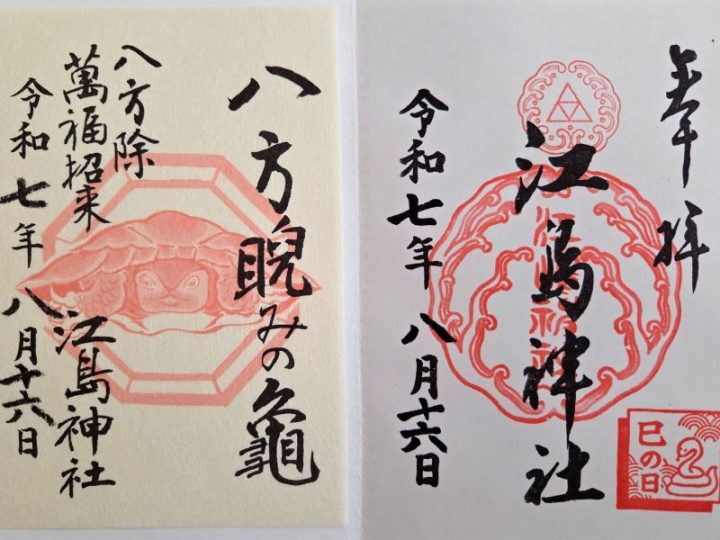 奉拝
江島神社
令和七年八月十六日
巳の日
八方睨みの亀
八方除
萬福招来
令和七年八月十六日
江島神社